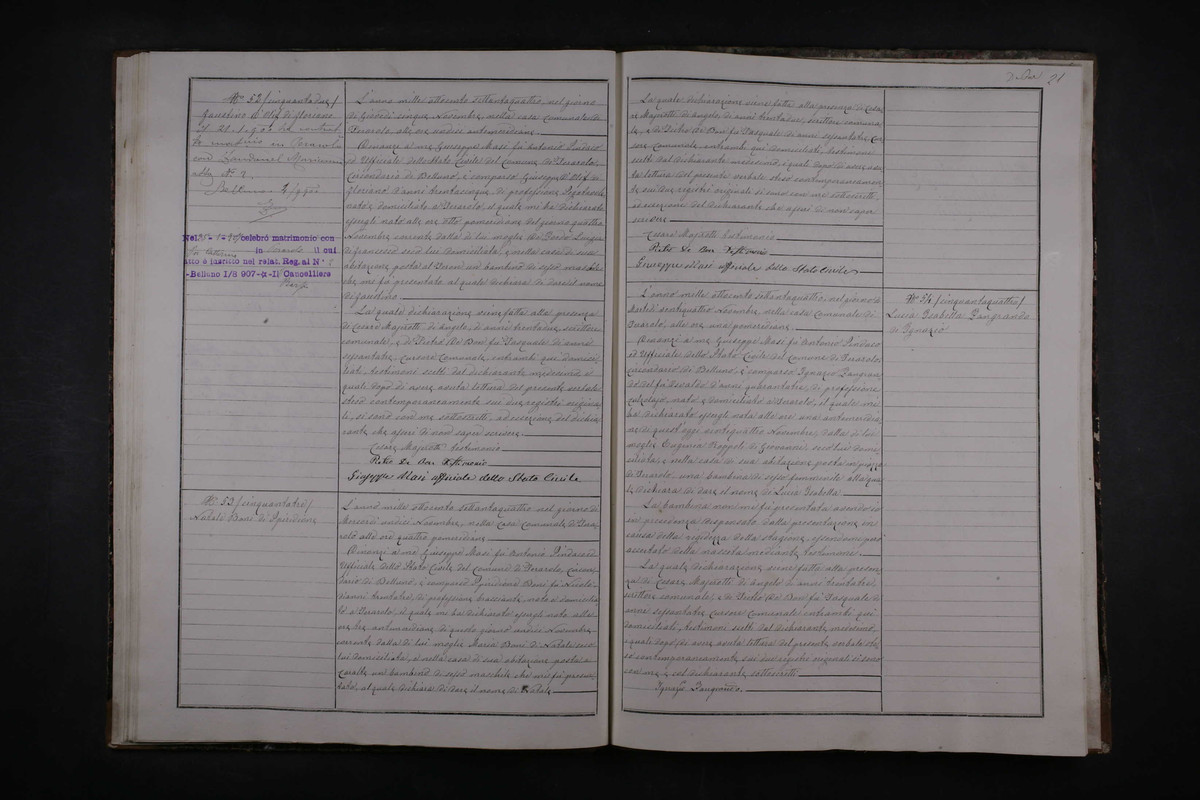 No 52 /cinquantadue/
Faustino D'Olif di Floriano
matrimonio in Perarolo
con Zandanel Marianna
atto N. 2.
Belluno
Nel celebrò matrimonio con
in il cui
atto è inscritto nel relat. Reg. al N°
-Belluno 1/8 907-(x-1) Cancelliere
L'anno mille ottocento settantaquattro, nel giorno
di Giovedì cinque Novembre, nella casa Comunale di
Perarolo, alle ore undici antimeridiane.
Avanzi a me Giuseppe Masi fu Antonio Sindaco
ed Uffiziale dello Stato Civile del Comune di Perarolo,
Circondario di Belluno, è comparso Giuseppe D'Olif di
Floriano d'anni trentacinque, di professione
nato e domiciliato a Perarolo, il quale mi ha dichiarato
essergli nato alle ore otto pomeridiane del giorno quattro
Novembre corrente dalla di lui moglie
di Francesco seco lui domiciliata, e nella casa di sua
abitazione posta al un bambino di sesso maschile
che mi fu presentato al quale dichiara di dare il nome
di Faustino.
La quale dichiarazione venne fatta alla presenza
di Cesare Majerotti di Angelo, di anni trentadue, scrittore
comunale, e di Pietro De Bon fu Pasquale di anni
sessantatre, cursore Comunale, entrambi qui domici
liati, testimoni scelti dal dichiarante medesimo, i
quali dopo di avere avuta lettura del presente verbale
steso contemporaneamente sui due registri origina
li, si sono con me sottoscritti, ad eccezione del dichia
rante che asserì di non sapere scrivere.
Cesare Majerotti testimonio
Pietro De Bon Testimonio
Giuseppe Masi uffiziale dello Stato Civile
No 53 /cinquantatre/
Natale Boni di Spiridione
L'anno mille ottocento settantaquattro, nel giorno di
Mercordì undici Novembre, nella casa comunale di Pera
rolo alle ore quattro pomeridiane.
Avanzi a me Giuseppe Masi fu Antonio Sindaco ed
Uffiziale dello Stato Civile del Comune di Perarolo, Circon
dario di Belluno, è comparso Spiridione Boni fu Nicolò
d'anni trentatre, di professione bracciante, nato e domicilia
to a Perarolo, il quale mi ha dichiarato essergli nato alle
ore tre antimeridiane di questo giorno undici Novembre
corrente dalla di lui moglie Maria Boni di Natale seco
lui domiciliata, e nella casa di sua abitazione posta a
Caralte un bambino di sesso maschile che mi fu presen
tato, al quale dichiara di dare il nome di Natale
21
La quale dichiarazione venne fatta alla presenza di Cesa
re Majerotti di Angelo, di anni trentadue, scrittore comuna
le, e di Pietro De Bon fu Pasquale di anni sessantatre, cur
sore Comunale, entrambi qui domiciliati, testimoni
scelti dal dichiarante medesimo, i quali dopo di avere avu
ta lettura del presente verbale steso contemporaneamen
te sui due registri originali si sono con me sottoscritti,
ad eccezione del dichiarante che asserì di non sapere
scrivere
Cesare Majerotti testimonio
Pietro De Bon Testimonio
Giuseppe Masi uffiziale dello Stato Civile
L'anno mille ottocento settantaquattro, nel giorno di
Martedì ventiquattro Novembre, nella casa Comunale di
Perarolo, alle ore una pomeridiane.
Avanzi a me Giuseppe Masi fu Antonio Sindaco
ed Uffiziale dello Stato Civile del Comune di Perarolo
Circondario di Belluno, è comparso Ignazio Zangran
do del fu Osvaldo d'anni quarantatre, di professione
calzolajo, nato e domiciliato a Perarolo, il quale mi
ha dichiarato essergli nata alle ore una antemeridia
ne di quest'oggi ventiquattro Novembre, dalla di lui
moglie Eugenia Zoppoli di Giovanni seco lui domi
ciliata, e nella casa di sua abitazione posta in piazza
di Perarolo, una bambina di sesso femminile alla qua
le dichiara di dare il nome di Lucia Isabella
La bambina non mi fu presentata avendo io
in precedenza dispensato dalla presentazione in
causa della rigidezza della stagione, essendomi poi
accertato della nascita mediante testimonio.
La quale dichiarazione venne fatta alla presen
za di Cesare Majerotti di Angelo d'anni trentatre,
scrittore comunale, e di Pietro De Bon fu Pasquale di
anni sessantatre, cursore Comunale entrambi qui
domiciliati, testimoni scelti dal dichiarante medesimo,
i quali dopo di avere avuta lettura del presente verbale ste
so contemporaneamente sui due registri originali si sono
con me e col dichiarante sottoscritti.
Ignazio Zangrando.
No 54 /cinquantaquattro/
Lucia Isabella Zangrando
di Ignazio